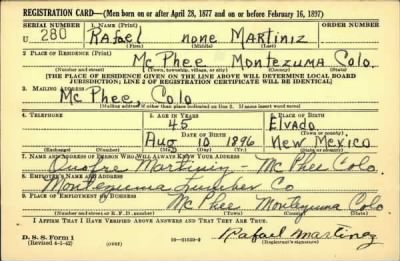 REGISTRATION CARD—(Men born on or after April 28, 1877 and on or before February 16, 1897)
SERIAL NUMBER 1. NAME (Print) ORDER NUMBER
U 280 Rafael none Martiniz
(First) (Middle) (Last)
2. PLACE OF RESIDENCE (Print)
Mc Phee Montezuma Colo.
(Number and street) (Town, township, village, or city) (County) (State)
[THE PLACE OF RESIDENCE GIVEN ON THE LINE ABOVE WILL DETERMINE LOCAL BOARD
JURISDICTION; LINE 2 OF REGISTRATION CERTIFICATE WILL BE IDENTICAL]
3. MAILING ADDRESS
Mc Phee, Colo
[Mailing address if other than place indicated on line 2. If same insert word same]
4. TELEPHONE 5. AGE IN YEARS 6. PLACE OF BIRTH
45 Elvado
DATE OF BIRTH (Town or county)
Aug 10 1896 New Mexico
(Exchange) (Number) (Mo.) (Day) (Yr.) (State or country)
7. NAME AND ADDRESS OF PERSON WHO WILL ALWAYS KNOW YOUR ADDRESS
Martiniz Mc Phee Colo.
8. EMPLOYER'S NAME AND ADDRESS
Montezuma Lumber Co
9. PLACE OF EMPLOYMENT OR BUSINESS
Mc Phee Montezuma Colo
(Number and street or R. F. D. number) (Town) (County) (State)
I AFFIRM THAT I HAVE VERIFIED ABOVE ANSWERS AND THAT THEY ARE TRUE.
D. S. S. Form 1
(Revised 4-1-42) (over)
Rafael Martinez
(Registrant's signature)